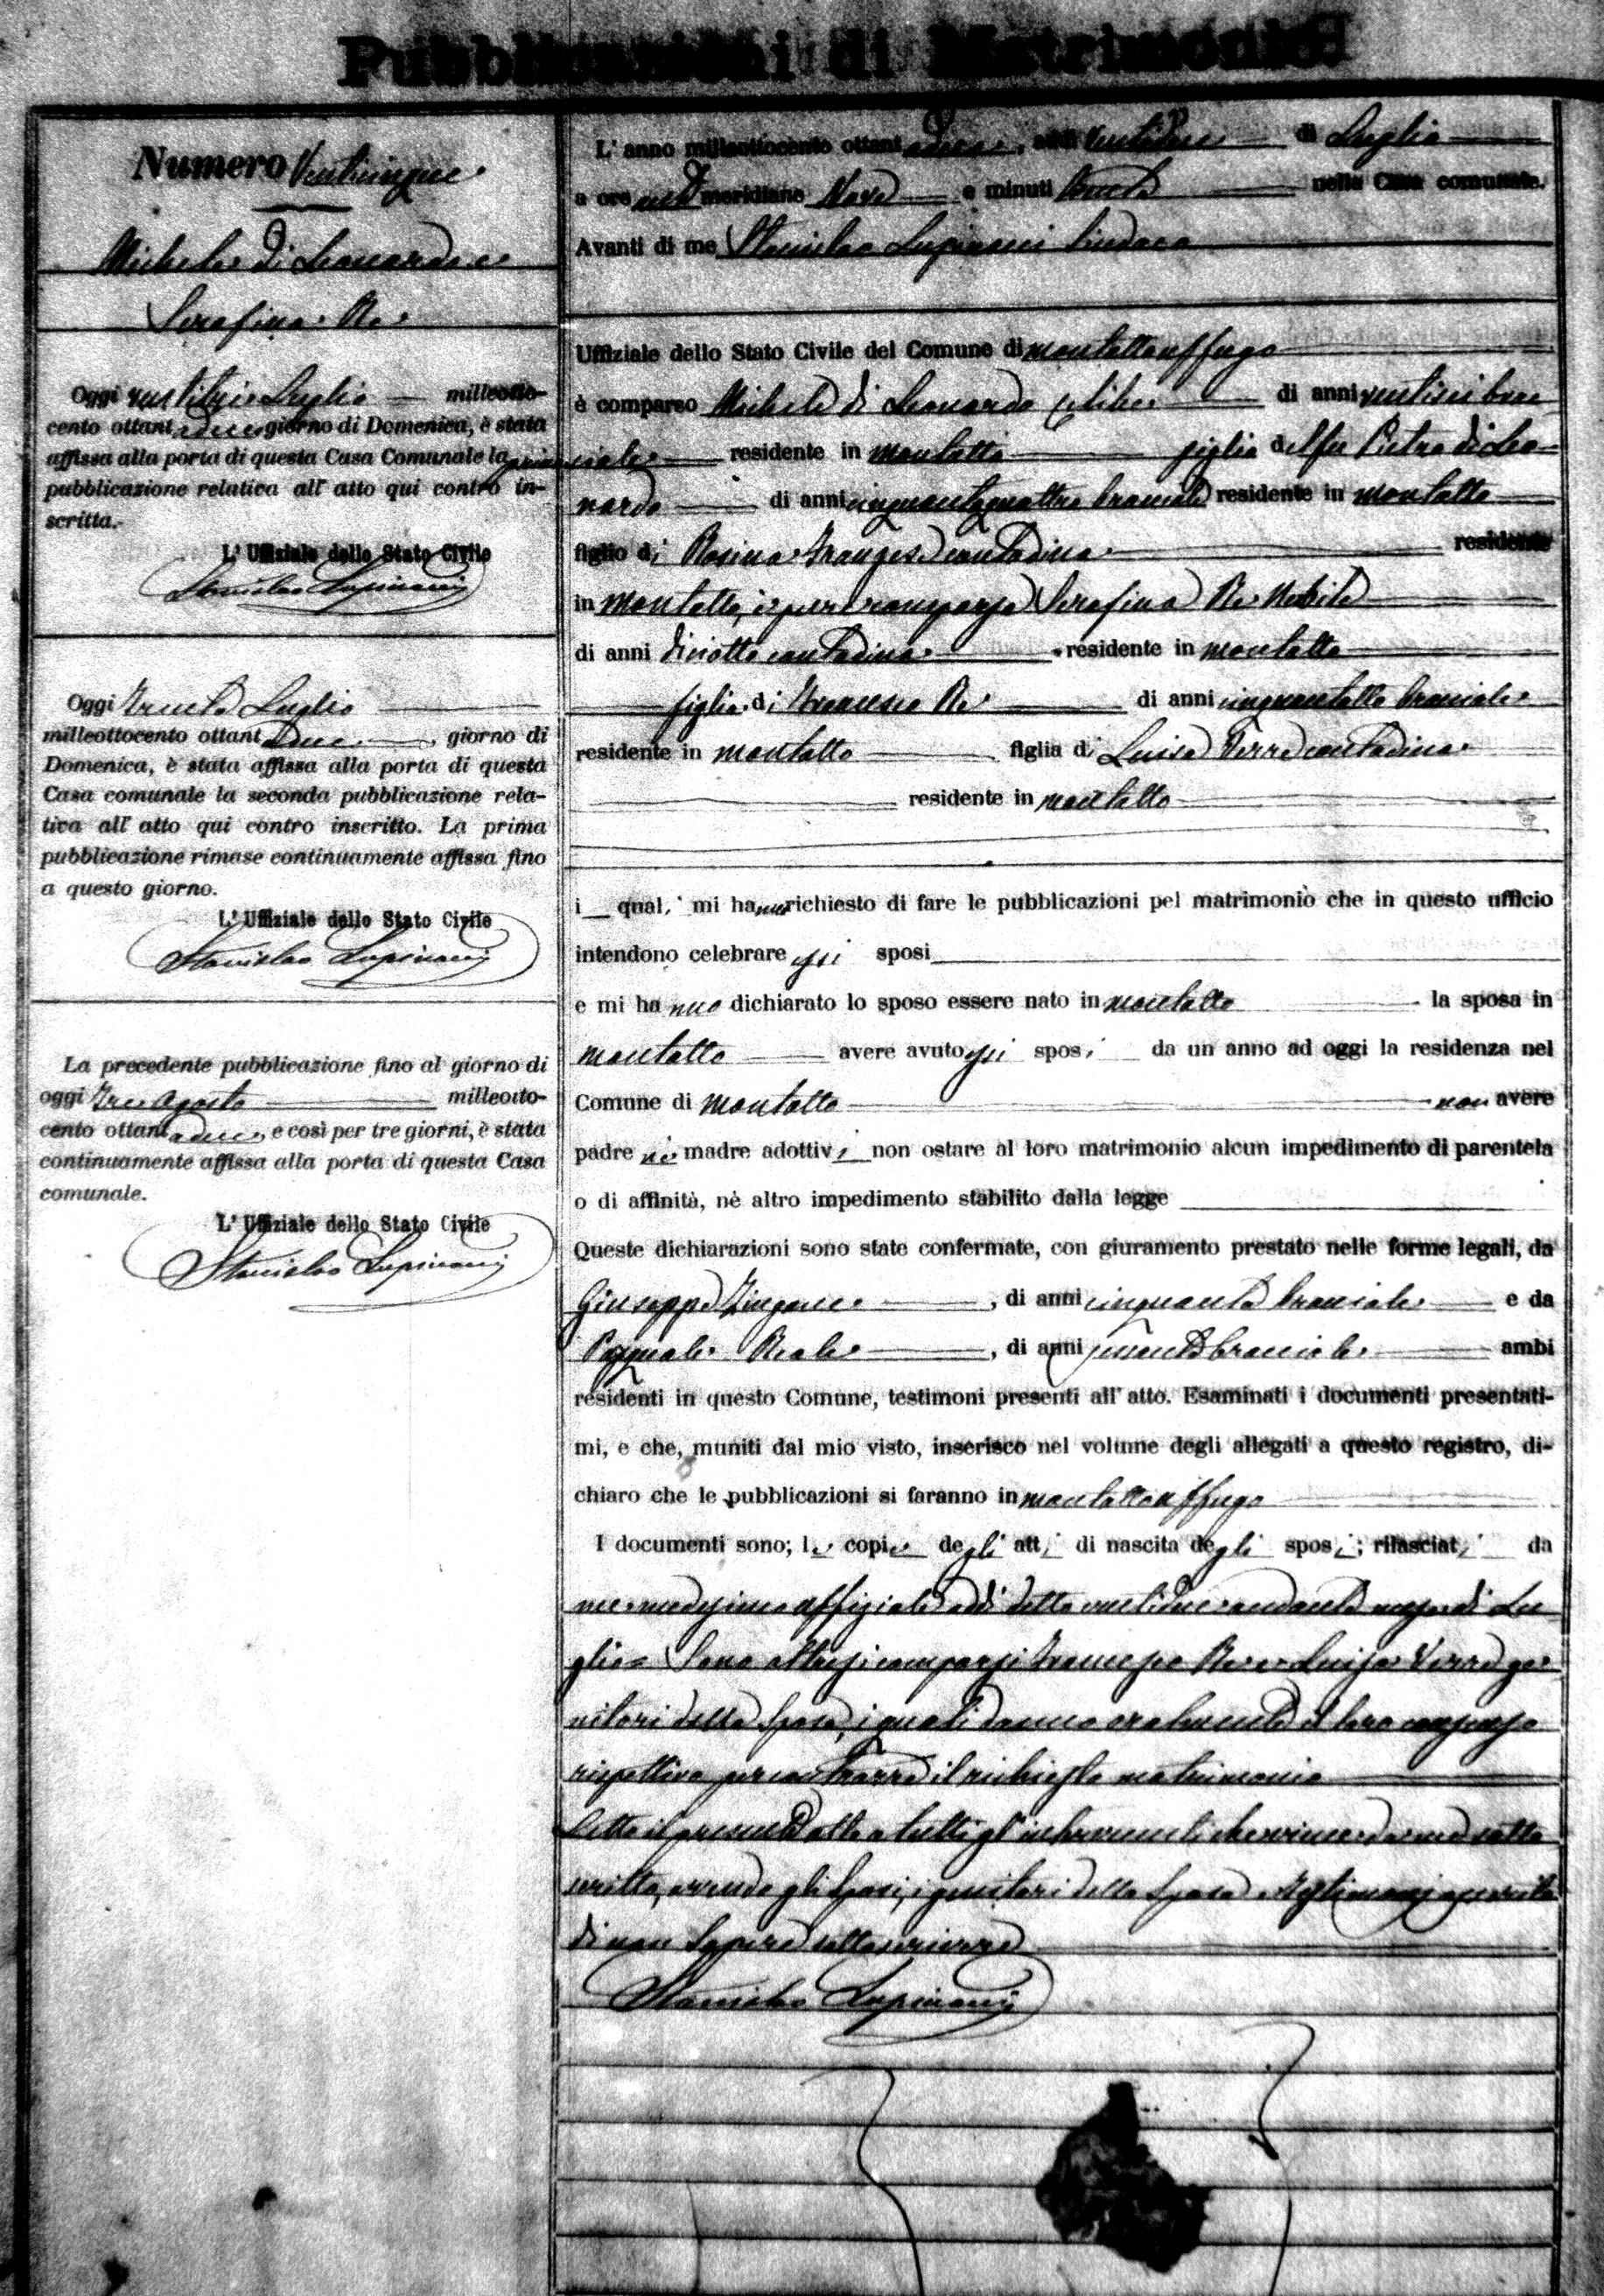 Pubblicazioni di Matrimonio
Numero Venticinque
Michele di Leonardo e
Serafina Re
Oggi ventitre Luglio milleotto-
cento ottantadue giorno di Domenica, è stata
affissa alla porta di questa Casa Comunale la prima
pubblicazione relativa all' atto qui contro in-
scritta.
L' Uffiziale dello Stato Civile
Stanislao Lupinacci
Oggi trenta Luglio
milleottocento ottantadue, giorno di
Domenica, è stata affissa alla porta di questa
Casa comunale la seconda pubblicazione rela-
tiva all' atto qui contro inscritto. La prima
pubblicazione rimase continuamente affissa fino
a questo giorno.
L' Uffiziale dello Stato Civile
Stanislao Lupinacci
La precedente pubblicazione fino al giorno di
oggi tre Agosto milleotto-
cento ottantadue, e così per tre giorni, è stata
continuamente affissa alla porta di questa Casa
comunale.
L' Uffiziale dello Stato Civile
Stanislao Lupinacci
L' anno milleottocento ottantadue, addì ventidue di Luglio
a ore antimeridiane Nove e minuti trenta nella Casa comunale.
Avanti di me Stanislao Lupinacci Sindaco
Uffiziale dello Stato Civile del Comune di Montaltouffugo
è comparso Michele di Leonardo celibe di anni ventisei brac
ciale residente in Montalto figlio del fu Pietro di Leo-
nardo di anni cinquantaquattro bracciale residente in Montalto
figlio di Rosina Frangese contadina residente
in Montalto, è pure comparsa Serafina Re Nubile
di anni diciotto contadina residente in Montalto
figlia di Francesco Re di anni cinquantotto bracciale
residente in Montalto figlia di Luisa Verre contadina
residente in Montalto
i quali mi hanno richiesto di fare le pubblicazioni pel matrimonio che in questo ufficio
intendono celebrare essi sposi
e mi hanno dichiarato lo sposo essere nato in Montalto la sposa in
Montalto avere avuto essi sposi da un anno ad oggi la residenza nel
Comune di Montalto non avere
padre nè madre adottivi non ostare al loro matrimonio alcun impedimento di parentela
o di affinità, nè altro impedimento stabilito dalla legge
Queste dichiarazioni sono state confermate, con giuramento prestato nelle forme legali, da
Giuseppe Zingone, di anni cinquanta bracciale e da
Pasquale Reale, di anni bracciale ambi
residenti in questo Comune, testimoni presenti all' atto. Esaminati i documenti presentati-
mi, e che, muniti dal mio visto, inserisco nel volume degli allegati a questo registro, di-
chiaro che le pubblicazioni si faranno in Montaltouffugo
I documenti sono; le copie degli atti di nascita degli sposi; rilasciati da
me medesimo uffiziale addì detto ventidue andante mese di Lu
glio= Sono altresì comparsi Francesco Re e Luisa Verre ge
nitori della Sposa, i quali danno oralmente il loro consenso
rispettivo per contrarre il richiesto matrimonio
Letto il presente atto a tutti gl' intervenuti che viene da me sotto
scritto, avendo gli Sposi, i genitori della Sposa e testimoni asserito
di non Sapere sottoscrivere
Stanislao Lupinacci